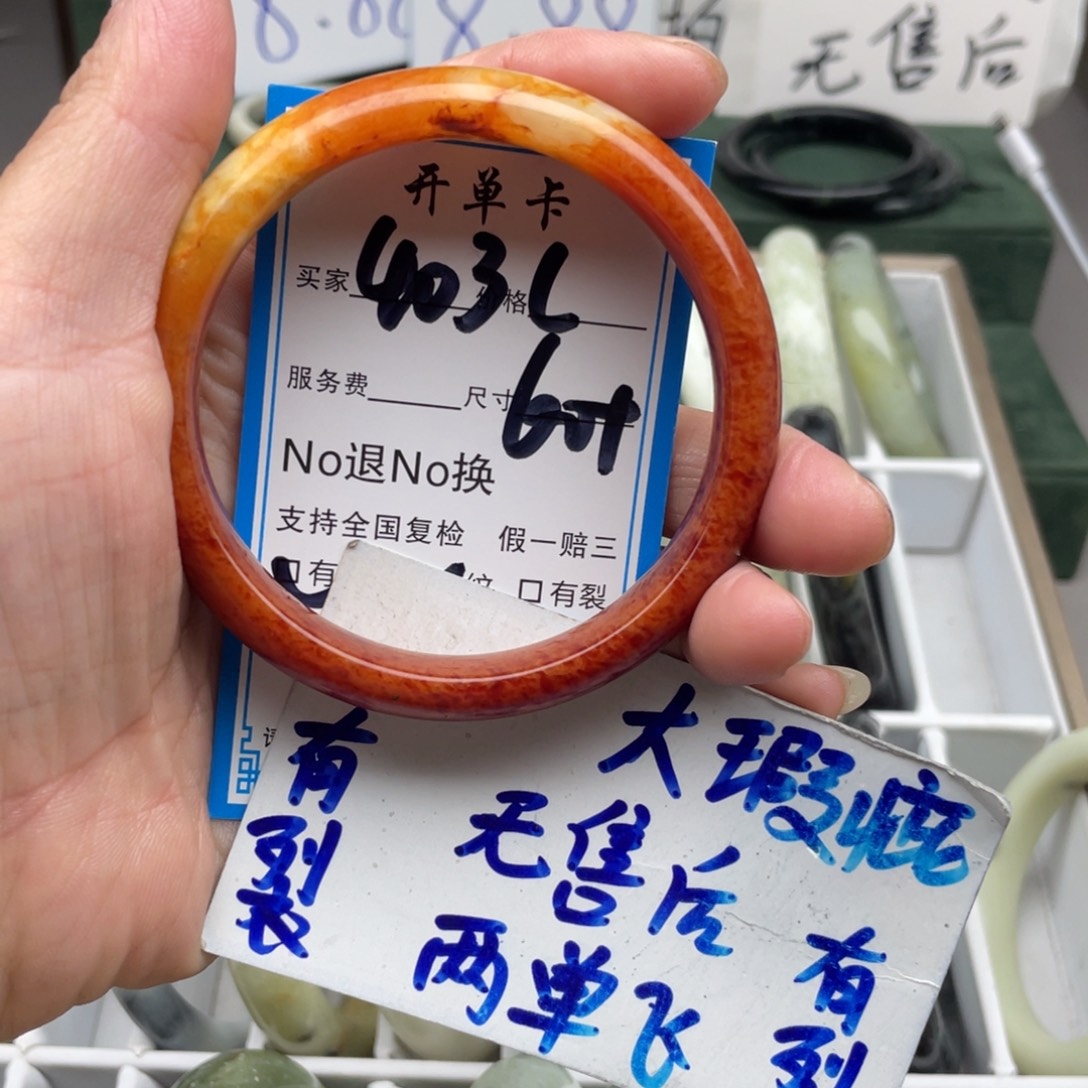 8.00 8.00
无售后
开单卡
买家 403L 价格
服务费 尺寸 60+
No退No换
支持全国复检 假一赔三
口有 纹 口有裂
有裂
大瑕疵
无售后
两单飞
有裂